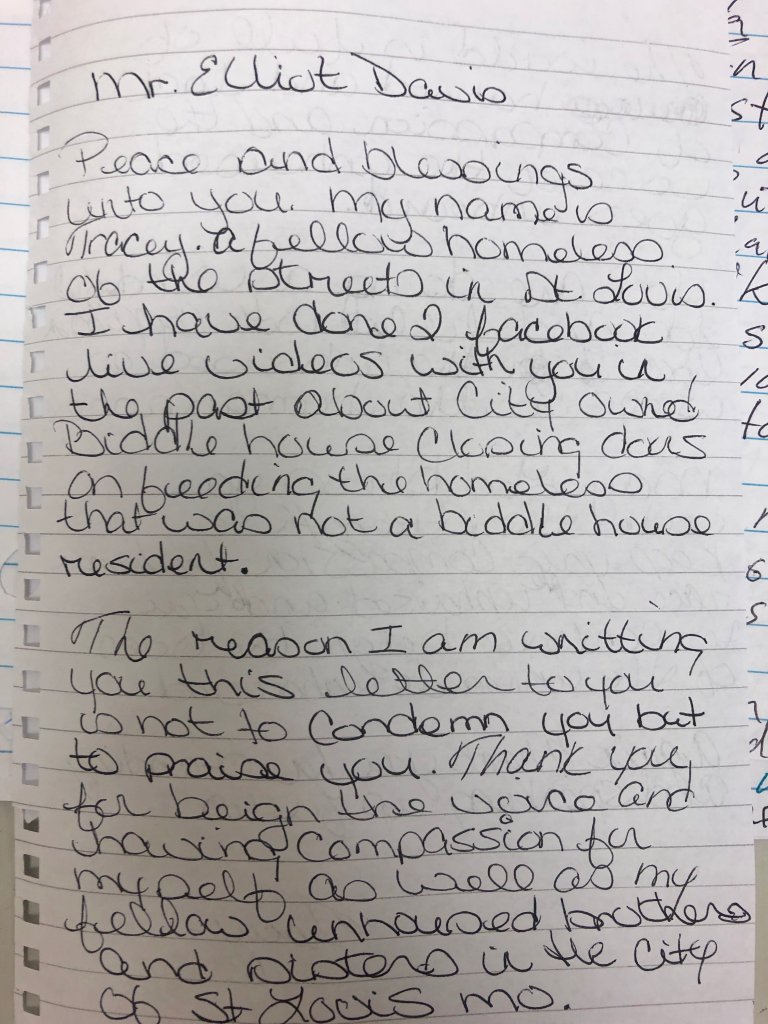 Mr. Elliot Davis
Peace and blessings
unto you. my name is
Tracey. a fellow homeless
of the streets in St Louis.
I have done 2 facebook
live videos with you in
the past about City owned
Biddle house closing doors
on feeding the homeless
that was not a biddle house
resident.
The reason I am writting
you this letter to you
is not to condemn you but
to praise you. Thank you
for beign the voice and
having compassion for
myself as well as my
fellow unhoused brothers
and sisters in the City
of St Louis mo.